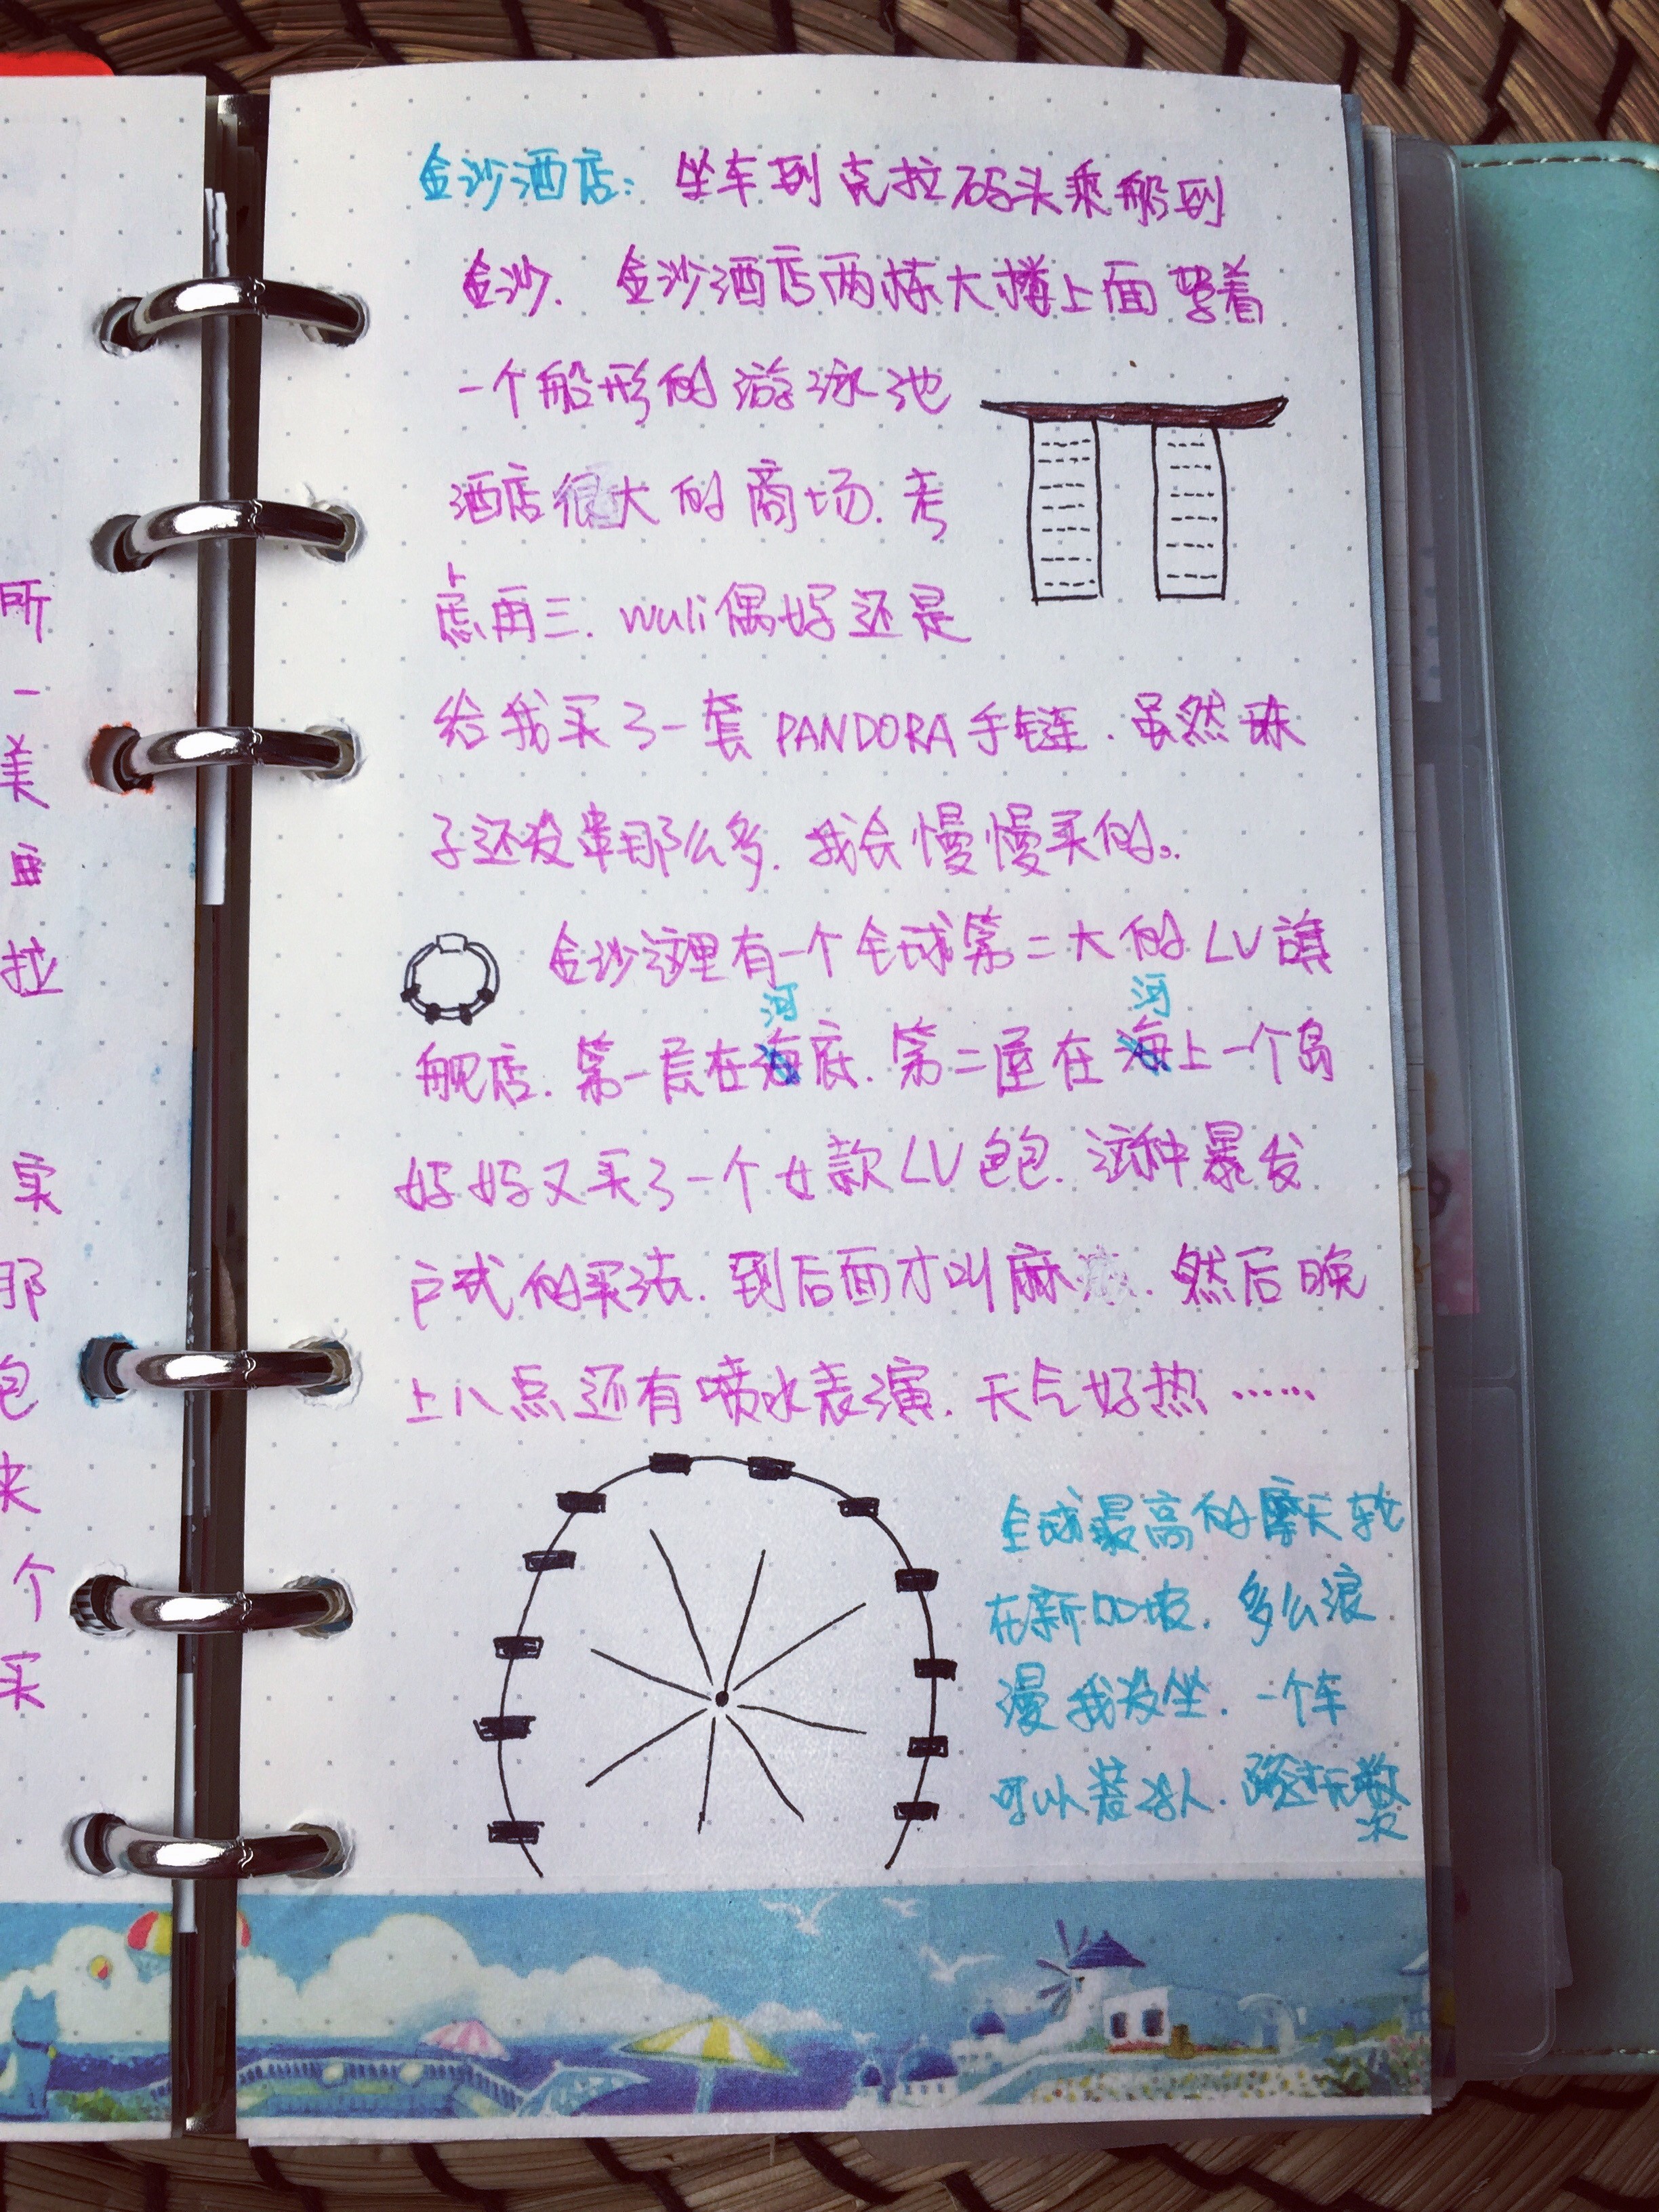 所
一
美
拉
实
那
包
来
个
买
金沙酒店：坐车到克拉码头乘船到
金沙．金沙酒店两栋大楼上面擎着
一个船形的游泳池
酒店很大的商场．考
虑再三．wuli偶好还是
给我买了一套PANDORA手链．虽然珠
子还没串那么多．我会慢慢买的。
金沙这里有一个全球第二大的LV旗
河 河
舰店．第一层在海底．第二层在海上一个岛
好好又买了一个女款LV包包．这种暴发
户式的买法．到后面才叫麻 ．然后晚
上八点还有喷水表演．天气好热……
全球最高的摩天轮
在新加坡．多么浪
漫我没坐．一个车
可以装 人．路过无数
次